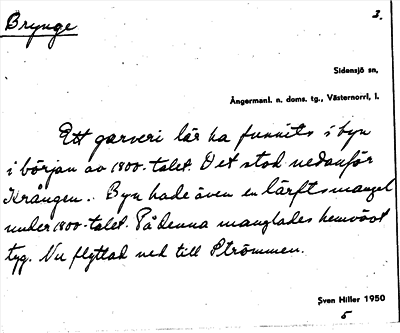 Brynge
3.
Sidensjö sn,
Ångermanl. n. doms. tg., Västernorrl, l.
Ett garveri lär ha funnits i byn
i början av 1800-talet. Det stod nedanför
Krången.. Byn hade även en lärftsmangel
under 1800-talet. På denna manglades hemvävt
tyg. Nu flyttad ned till Strömmen.
Sven Hiller 1950
5